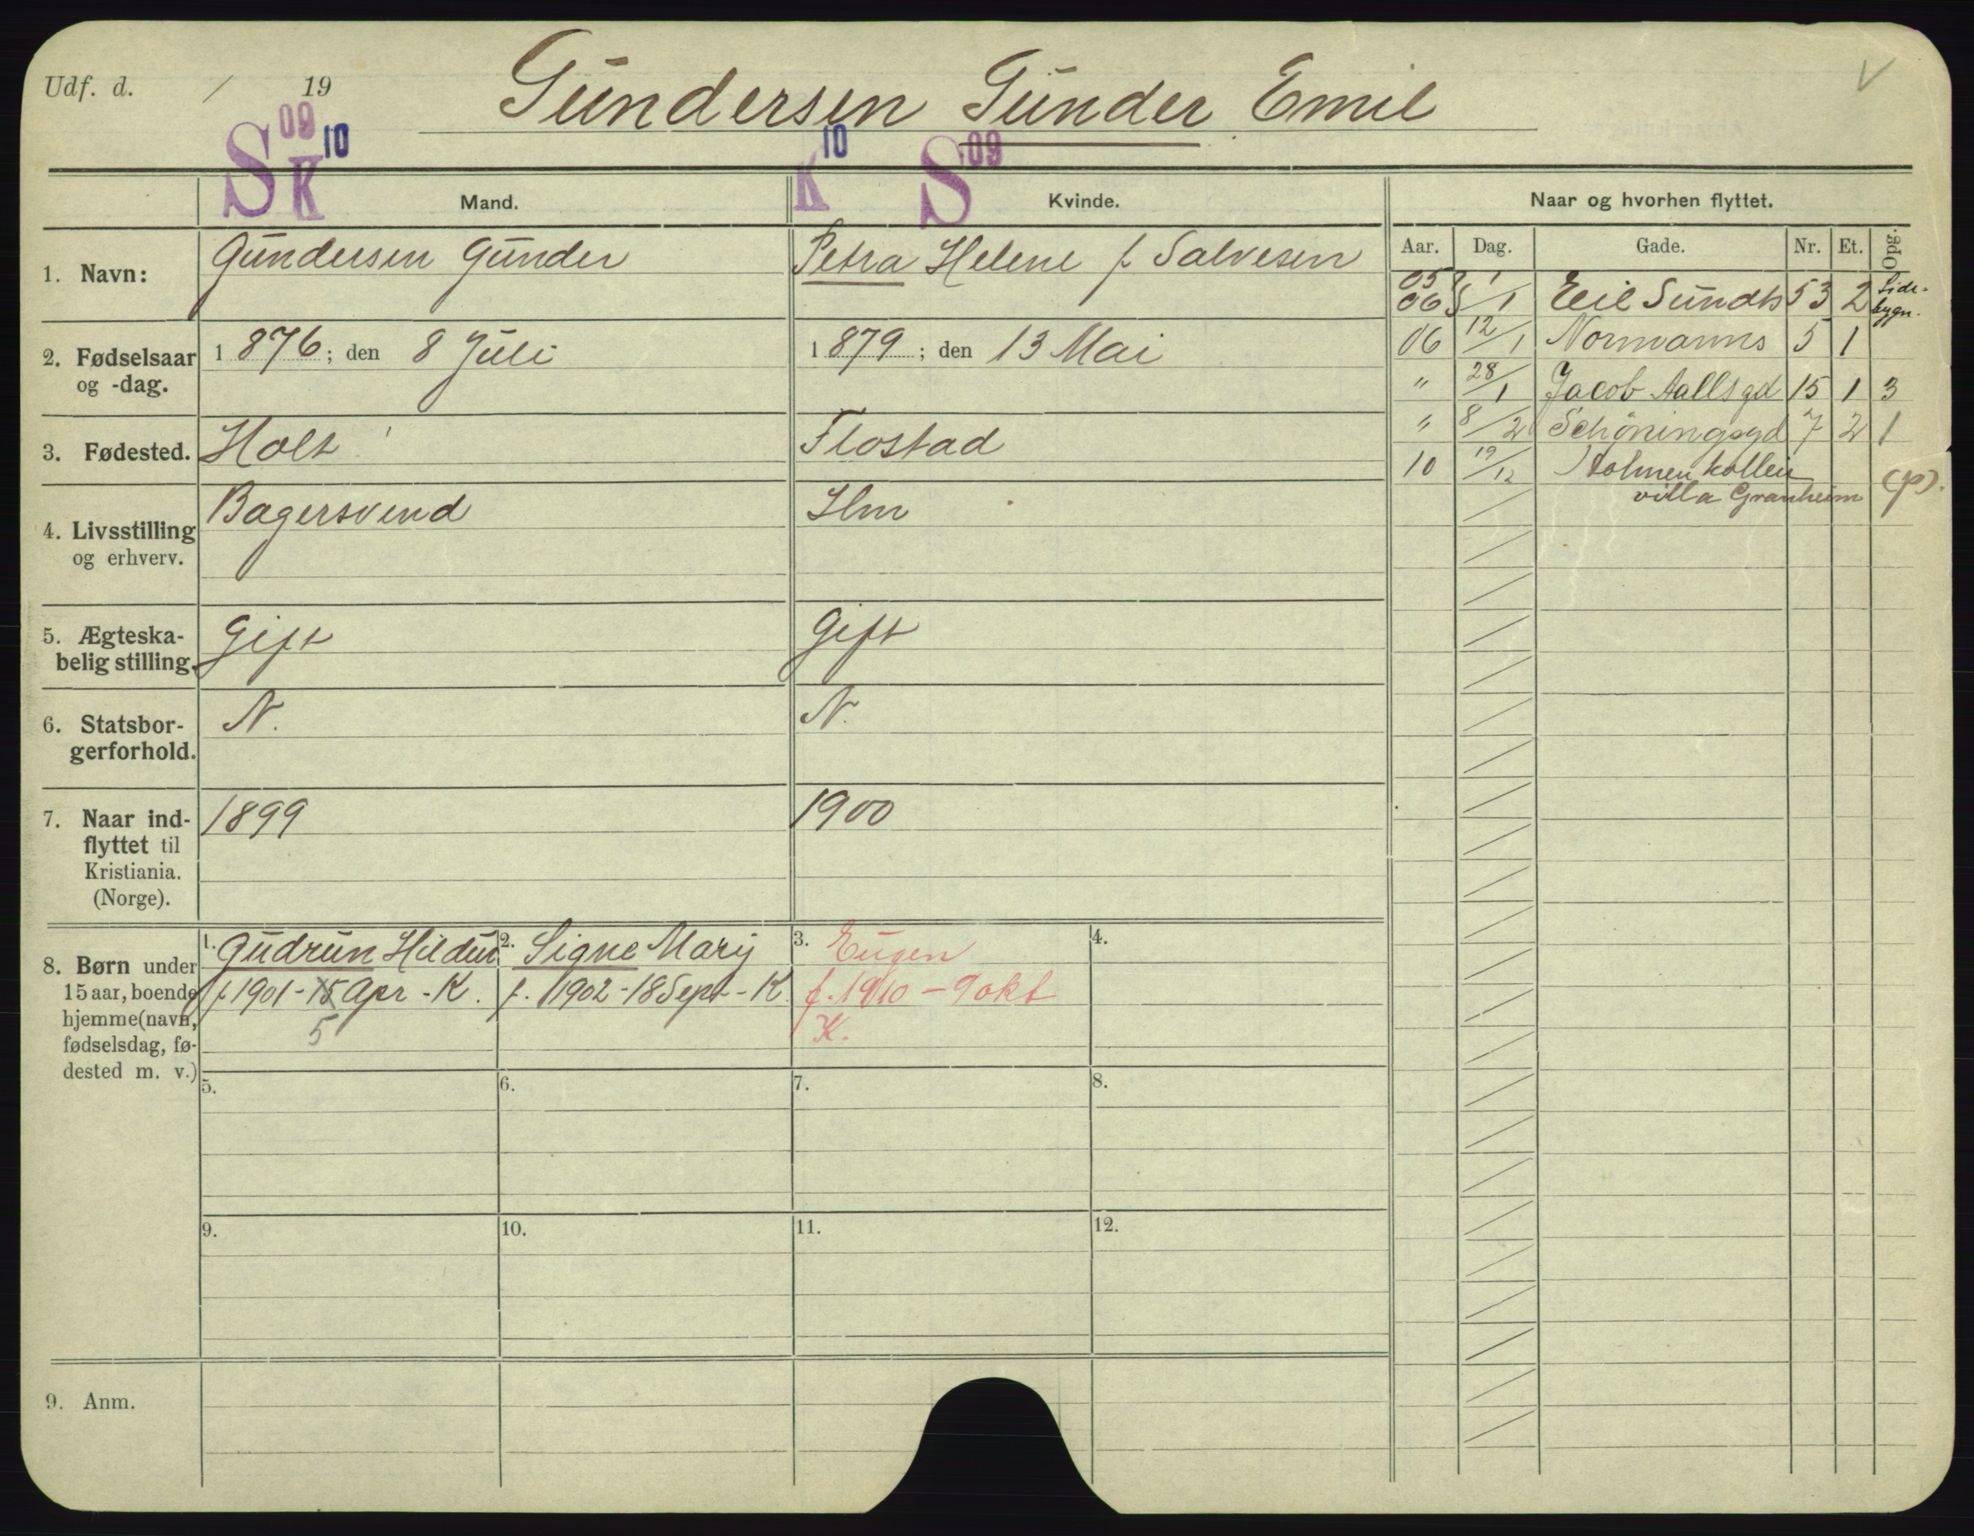 Udf. d. / 19
Gundersen Gunder Emil
V
S 09 K 10
K 10 S 09
Mand.
Kvinde.
Naar og hvorhen flyttet.
Aar. Dag. Gade. Nr. Et. Opg.
1. Navn:
Gundersen Gunder
Petra Helene f. Salvesen
2. Fødselsaar
og -dag.
1876; den 8 Juli
1879; den 13 Mai
3. Fødested.
Holt
Flostad
4. Livsstilling
og erhverv.
Bagersvend
Hm
5. Ægteska-
belig stilling.
Gift
Gift
6. Statsbor-
gerforhold.
N.
N.
7. Naar ind-
flyttet til
Kristiania.
(Norge).
1899
1900
8. Børn under
15 aar, boende
hjemme (navn,
fødselsdag, fø-
dested m. v.)
1. Gudrun Hildur
f. 1901 - 15 Apr - K.
5
2. Signe Mary
f. 1902 - 18 Sept - K.
3. Eugen
f. 1910 - 9 okt
K.
4.
5.
6.
7.
8.
9.
10.
11.
12.
9. Anm.
05
06 1/1 Eeil Sundts 53 2 Side-
bygn.
06 12/1 Normanns 5 1
" 28/1 Jacob Aalls gd 15 1 3
" 8/2 Schøningsgd 7 2 1
10 19/12 Holmenkollen
villa Granheim (p).